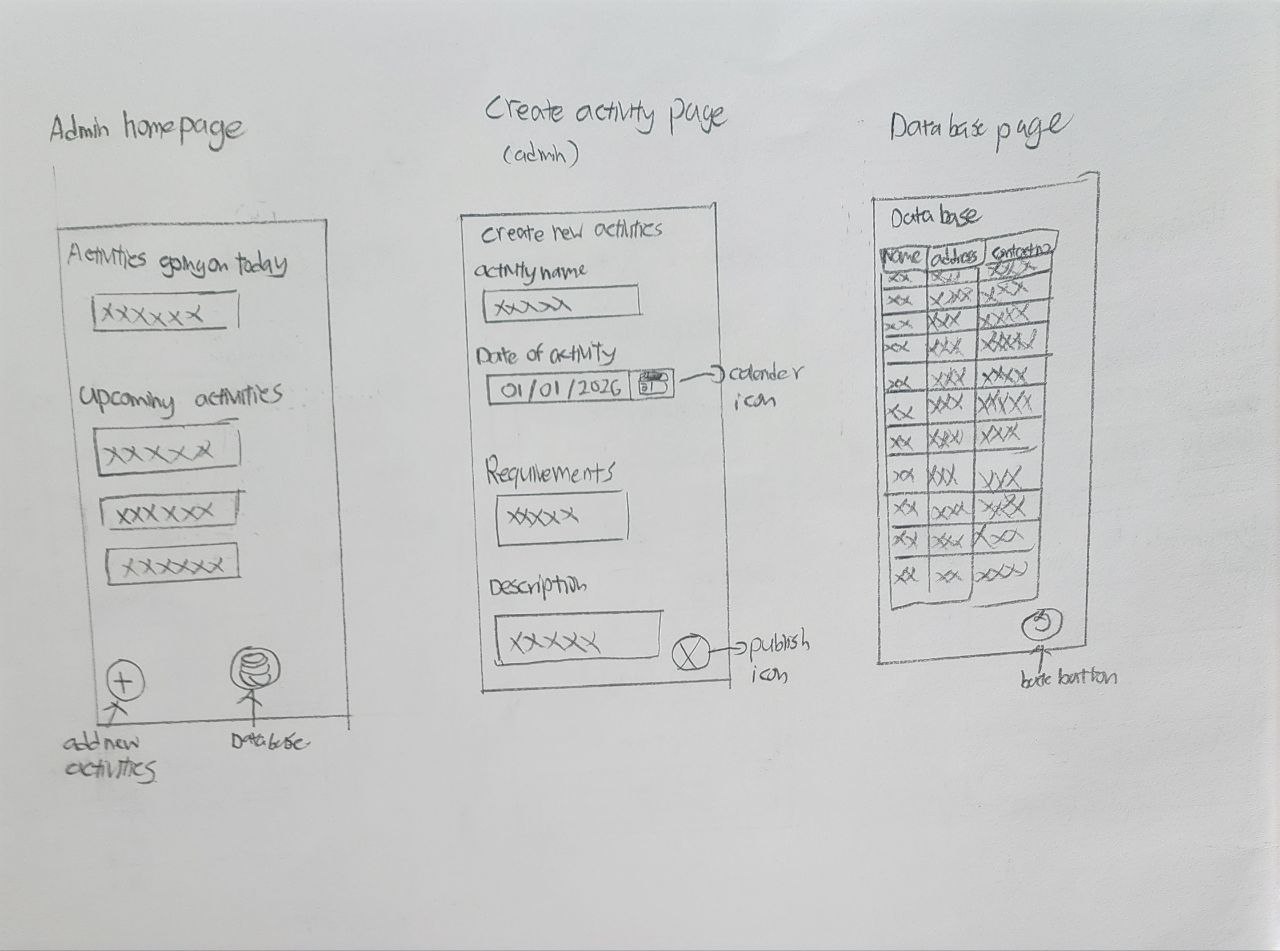 Admin homepage
Activities going on today
XXXXXX
Upcoming activities
XXXXX
XXXXXX
XXXXXX
add new
activities
Database
Create activity page
(admin)
Create new activities
activity name
XXXXX
Date of activity
01/01/2026
01
calender
icon
Requirements
XXXXX
Description
XXXXX
publish
icon
Database page
Database
Name address contact no
XX XXX XXX
XX XXX XXX
XX XXX XXXX
XX XXX XXXX
XX XXX XXXX
XX XXX XXXXX
XX XXX XXX
XX XXX XXX
XX XXX XXX
XX XXX XXX
XX XX XXX
button